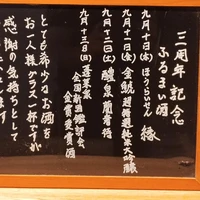 三周年記念
ふるまい酒
九月十日(木)ほうらいせん 縁
九月十一日(金)金鯱超特選純米大吟醸
九月十二日(土)醸し泉 蘭奢待
九月十三日(日)蓬莱泉
全国新酒鑑評会
金賞受賞酒
とても希少なお酒を
お一人様グラス一杯ですが
感謝の気持ちとして